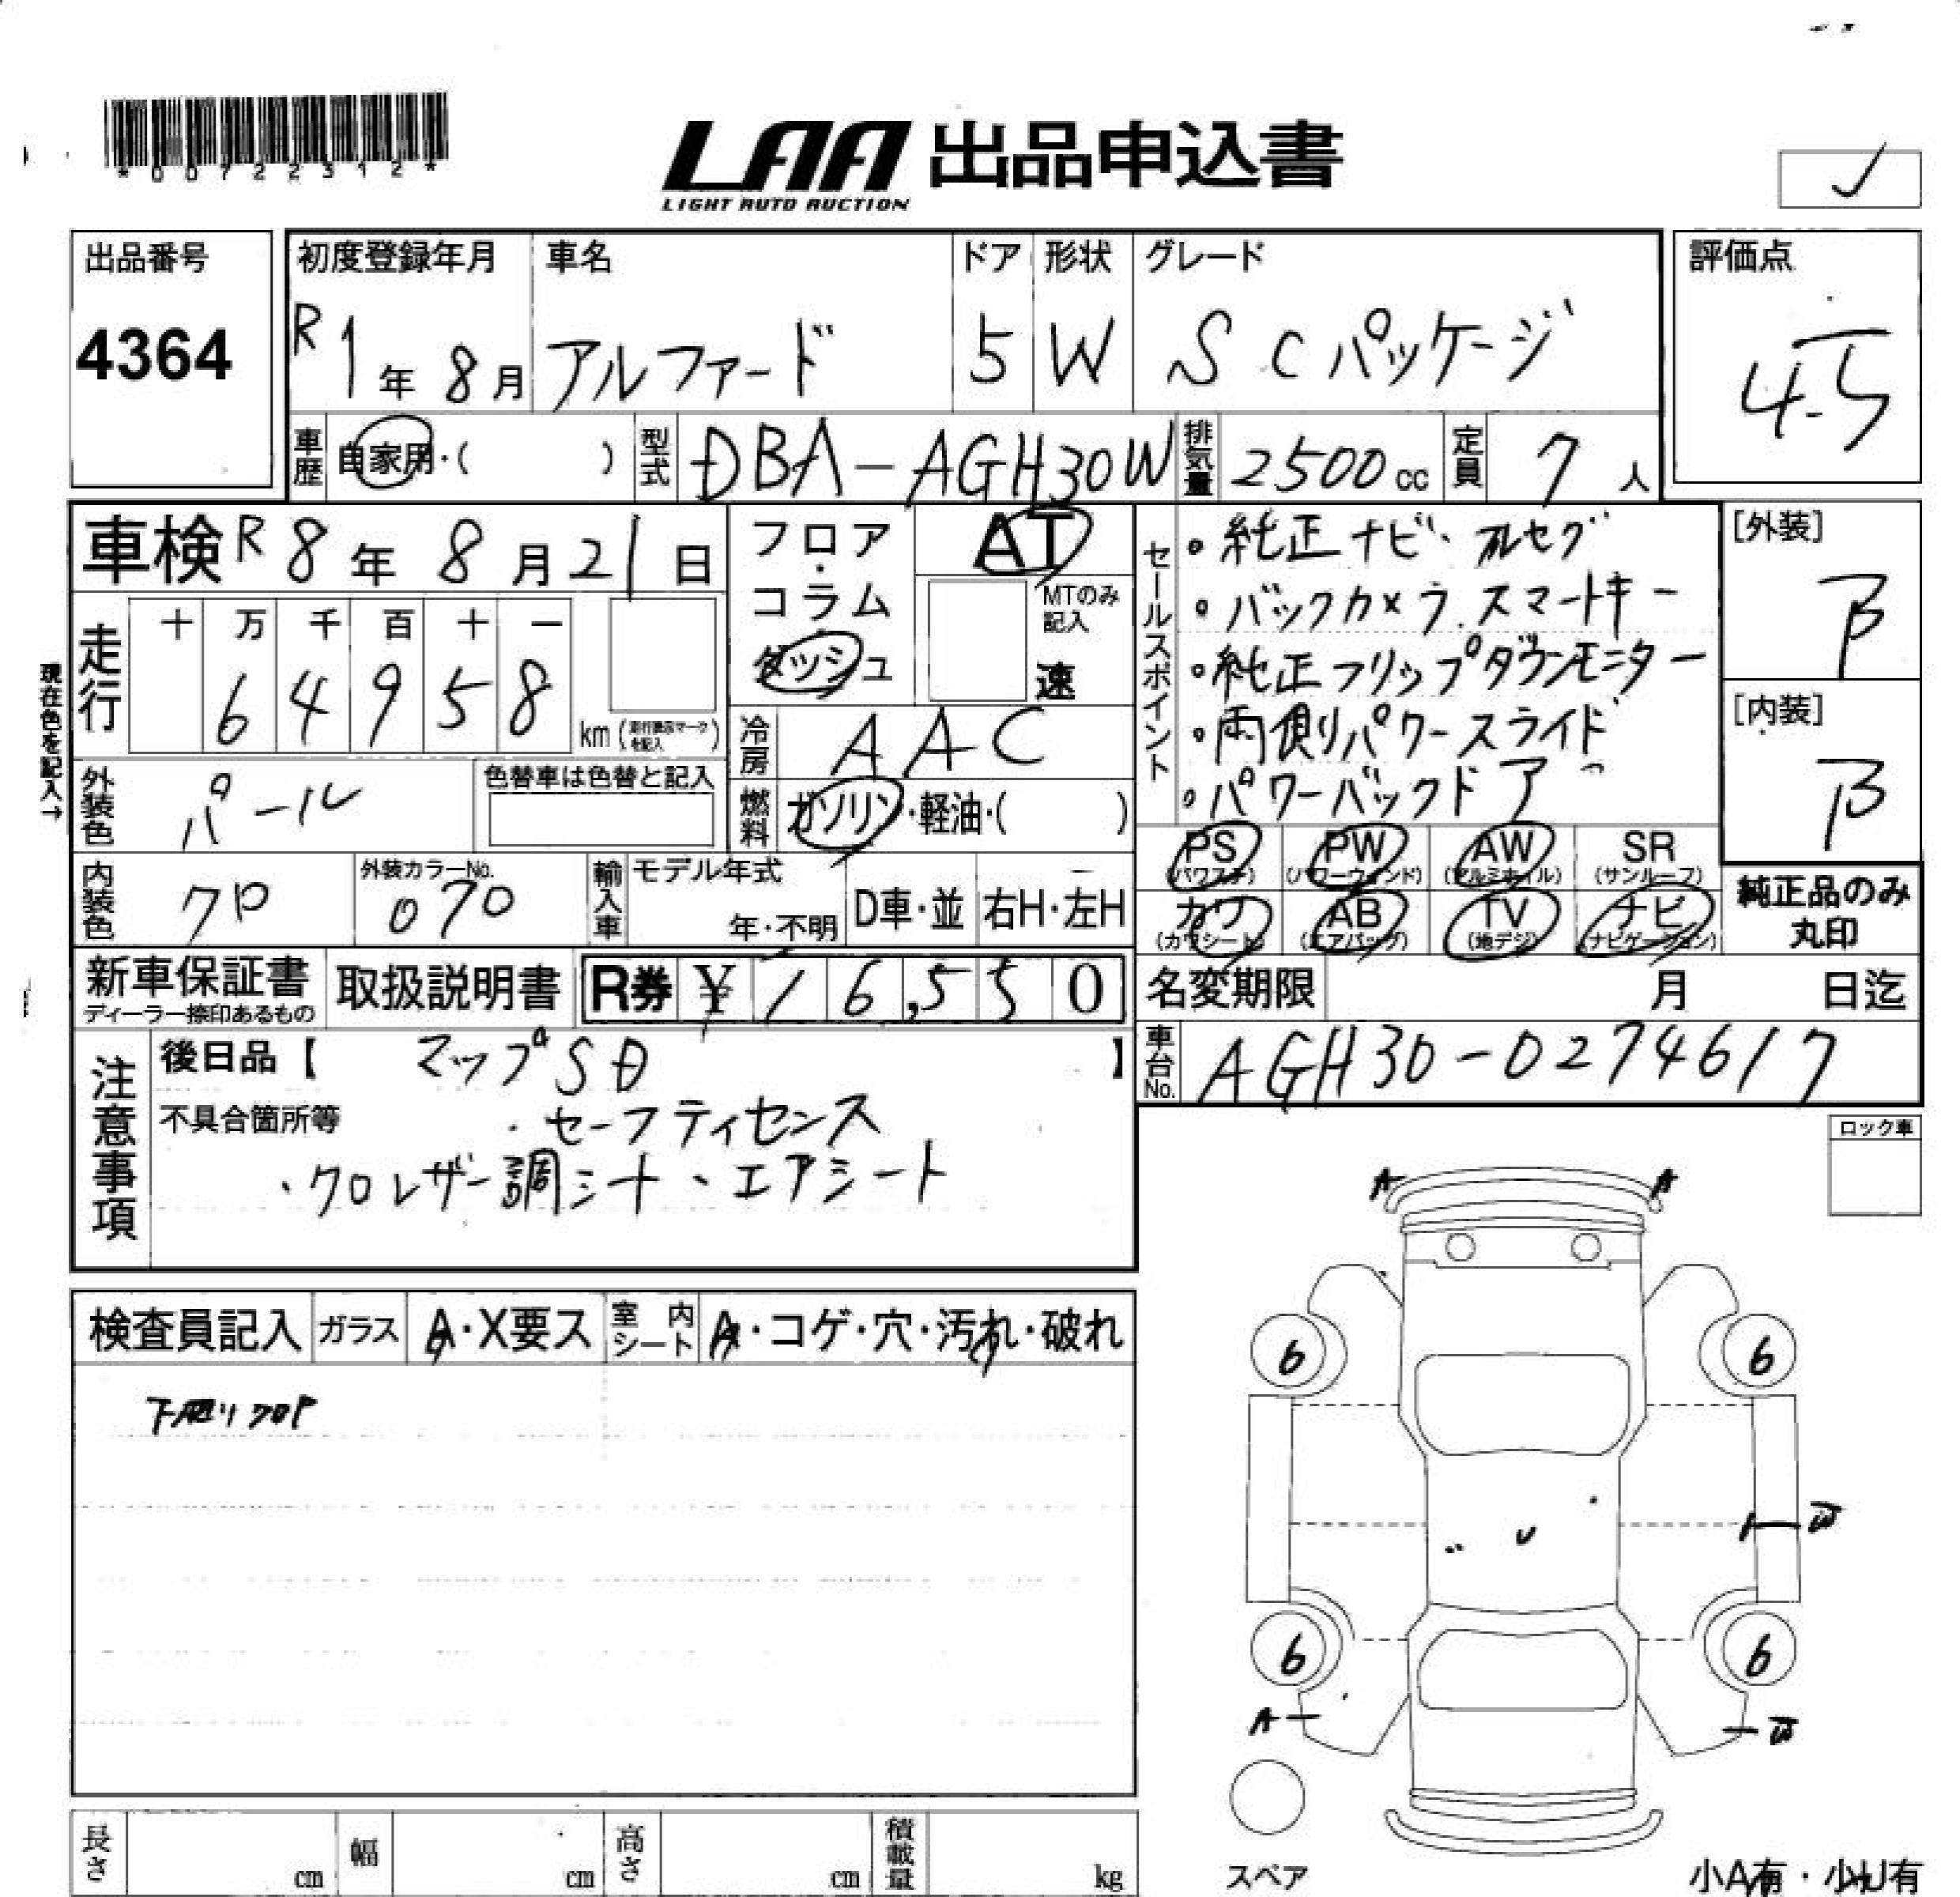 *00722312*
LAA 出品申込書
LIGHT AUTO AUCTION
出品番号
4364
初度登録年月
R1年8月
車名
アルファード
ドア
5
形状
W
グレード
S Cパッケージ
評価点
4.5
車歴
自家用・( )
型式
DBA-AGH30W
排気量
2500cc
定員
7人
車検 R8年8月21日
フロア・コラム
ダッシュ
AT
MTのみ記入
速
セールスポイント
・純正ナビ、フルセグ
・バックカメラ、スマートキー
・純正フリップダウンモニター
・両側パワースライド
・パワーバックドア
[外装]
B
[内装]
B
走行
十 万 千 百 十 一
6 4 9 5 8
km
現在色を記入→
冷房
AAC
外装色
パール
色替車は色替と記入
燃料
ガソリン・軽油・( )
PS (パワステ)
PW (パワーウィンド)
AW (アルミホイル)
SR (サンルーフ)
カワ (カワシート)
AB (エアバッグ)
TV (地デジ)
ナビ (ナビゲーション)
純正品のみ丸印
内装色
クロ
外装カラーNo.
070
輸入車
モデル年式
年・不明
D車・並
右H・左H
新車保証書
ディーラー捺印あるもの
取扱説明書
R券 ¥16,550
名変期限 月 日迄
車台No.
AGH30-0274617
注意事項
後日品【 マップSD 】
不具合箇所等
・セーフティセンス
・クロレザー調シート、エアシート
ロック車
検査員記入
ガラス
A・X要ス
室内シート
A・コゲ・穴・汚れ・破れ
A A
6 6
U
W
6 6
A W
スペア
長さ cm
幅 cm
高さ cm
積載量 kg
小A有・小U有